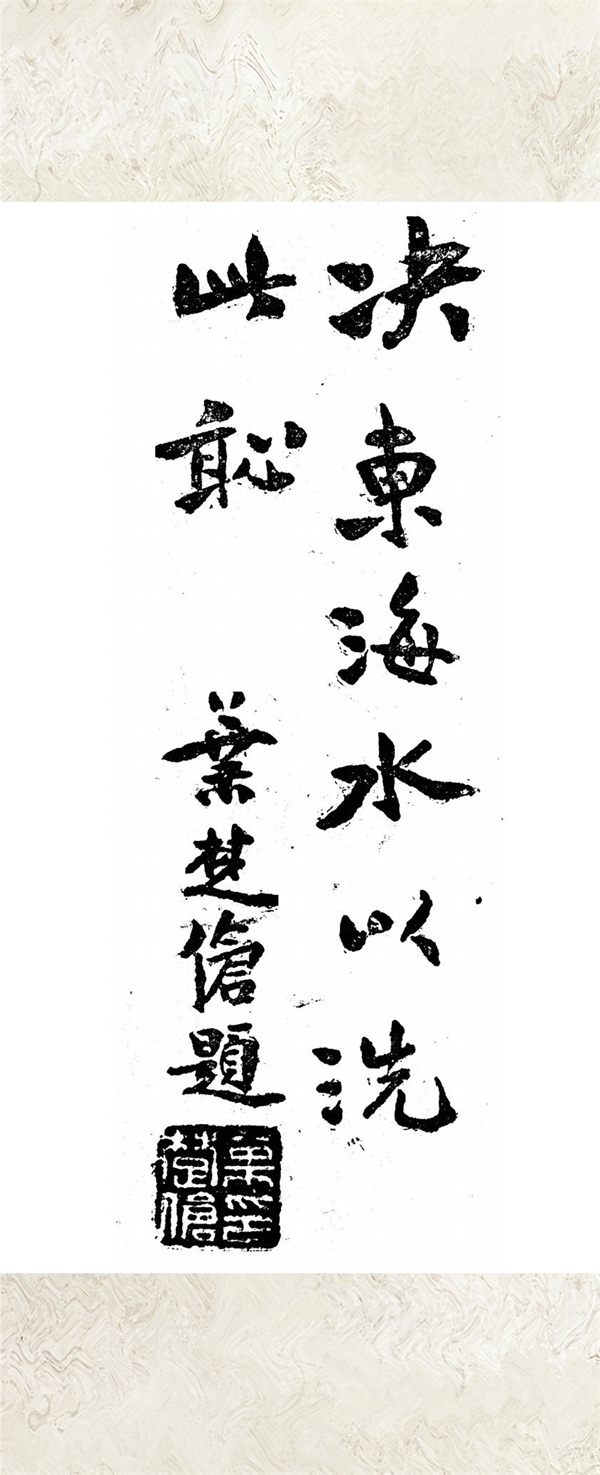 决東海水以洗
此恥 葉楚傖題
葉印
楚傖